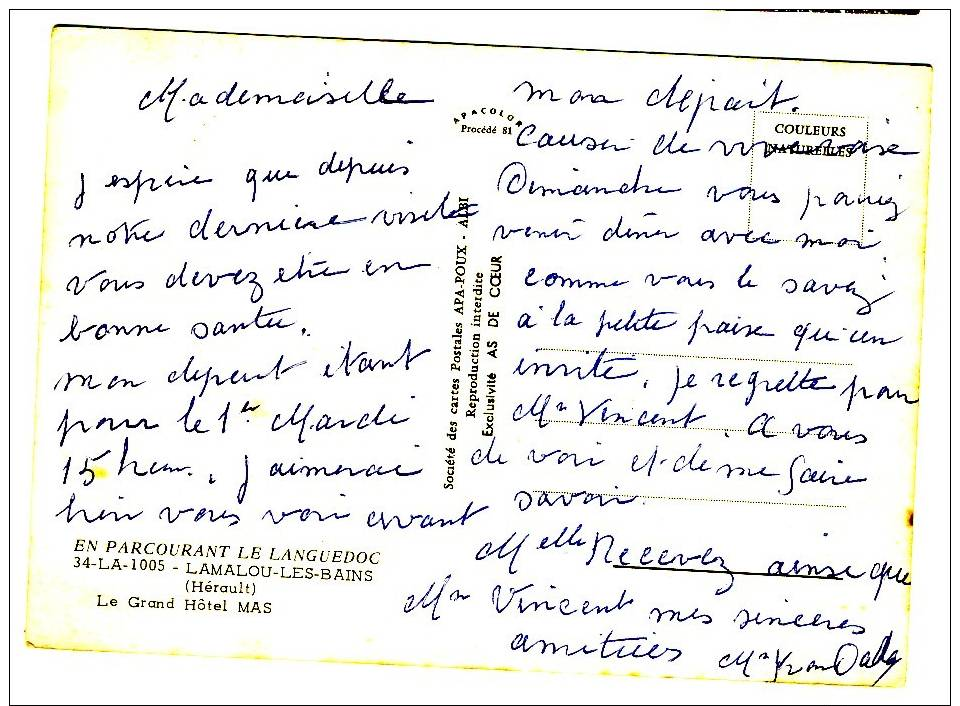 Mademoiselle
J espère que depuis
notre derniere visite
vous devez etre en
bonne santé.
mon depart étant
pour le 1er Mardi
15 heur. J aimerai
bien vous voir avant
mon départ.
Causer de vive voix
Dimanche vous pouriez
venir diner avec moi
comme vous le savez
à la petite
invité, je regrette pour
Mr Vincent. A vous
de voir et de me faire
savoir.
Melle Recevez ainsi que
Mr Vincent mes sinceres
amitiées
APACOLOR
Procédé 81
COULEURS
NATURELLES
Société des cartes Postales APA-POUX - ALBI
Reproduction interdite
Exclusivité AS DE CŒUR
EN PARCOURANT LE LANGUEDOC
34-LA-1005 - LAMALOU-LES-BAINS
(Hérault)
Le Grand Hôtel MAS